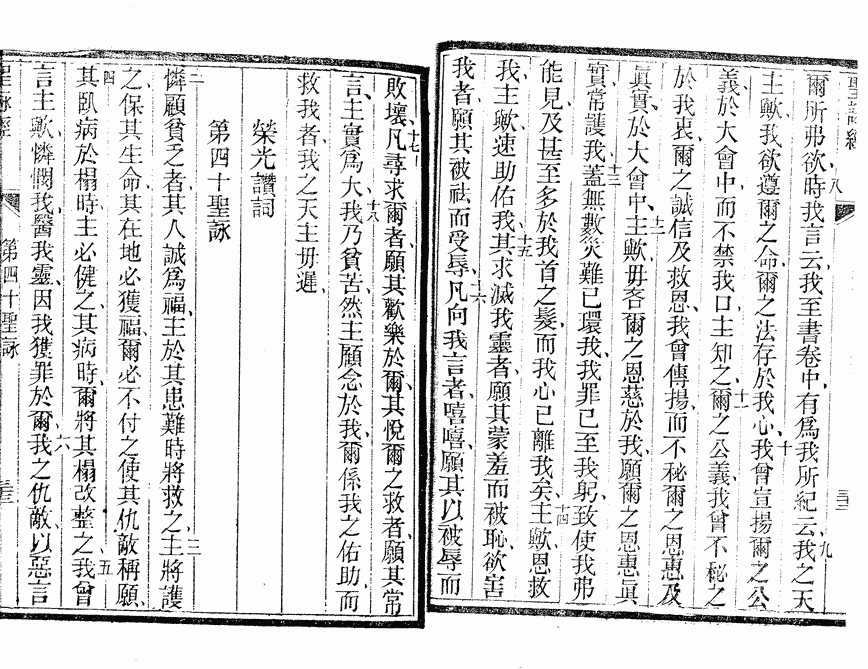 聖詠經
三十二
八
爾所弗欲時我言云我至書卷中有爲我所紀云我之天九
主歟我欲遵爾之命爾之法存於我心十我曾宣揚爾之公
義於大會中而不禁我口主知之十一爾之公義我曾不秘之
於我衷爾之誠信及救恩我曾傳揚而不秘爾之恩惠及
眞實於大會中十二主歟毋吝爾之恩慈於我願爾之恩惠眞
實常護我十三蓋無數災難已環我我罪已至我躬致使我弗
能見及甚至多於我首之髮而我心已離我矣十四主歟恩救
我主歟速助佑我十五其求滅我靈者願其蒙羞而被恥欲害
我者願其被祛而受辱十六凡向我言者嘻嘻願其以被辱而
敗壞十七凡尋求爾者願其歡樂於爾其悅爾之救者願其常
言主實爲大十八我乃貧苦然主願念於我爾係我之佑助而
救我者我之天主毋遲
榮光讚詞
第四十聖詠
二憐顧貧乏者其人誠爲福主於其患難時將救之三主將護
之保其生命其在地必獲福爾必不付之使其仇敵稱願
四其臥病於榻時主必健之其病時爾將其榻改整之五我曾
言主歟憐憫我醫我靈因我獲罪於爾六我之仇敵以惡言
聖詠經
第四十聖詠
三十三